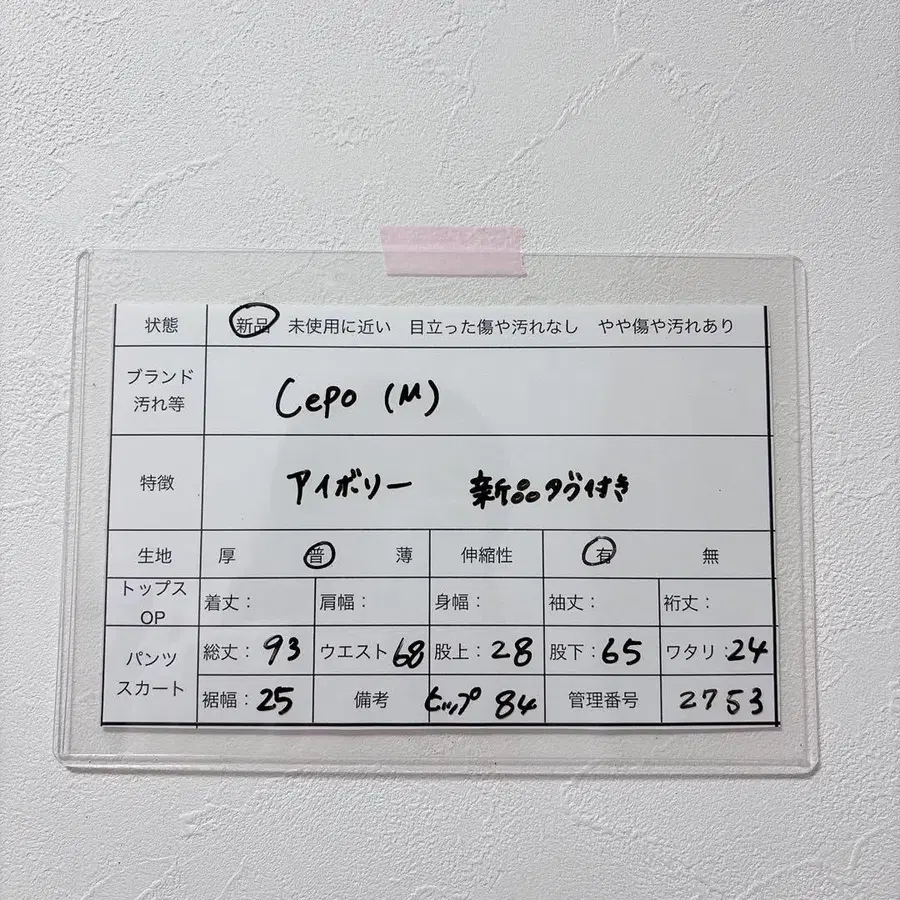 状態 新品 未使用に近い 目立った傷や汚れなし やや傷や汚れあり
ブランド
汚れ等
Cepo (M)
特徴 アイボリー 新品タグ付き
生地 厚 普 薄 伸縮性 有 無
トップス
OP
着丈: 肩幅: 身幅: 袖丈: 裄丈:
パンツ
スカート
総丈: 93 ウエスト 68 股上: 28 股下: 65 ワタリ: 24
裾幅: 25 備考 ヒップ 84 管理番号 2753